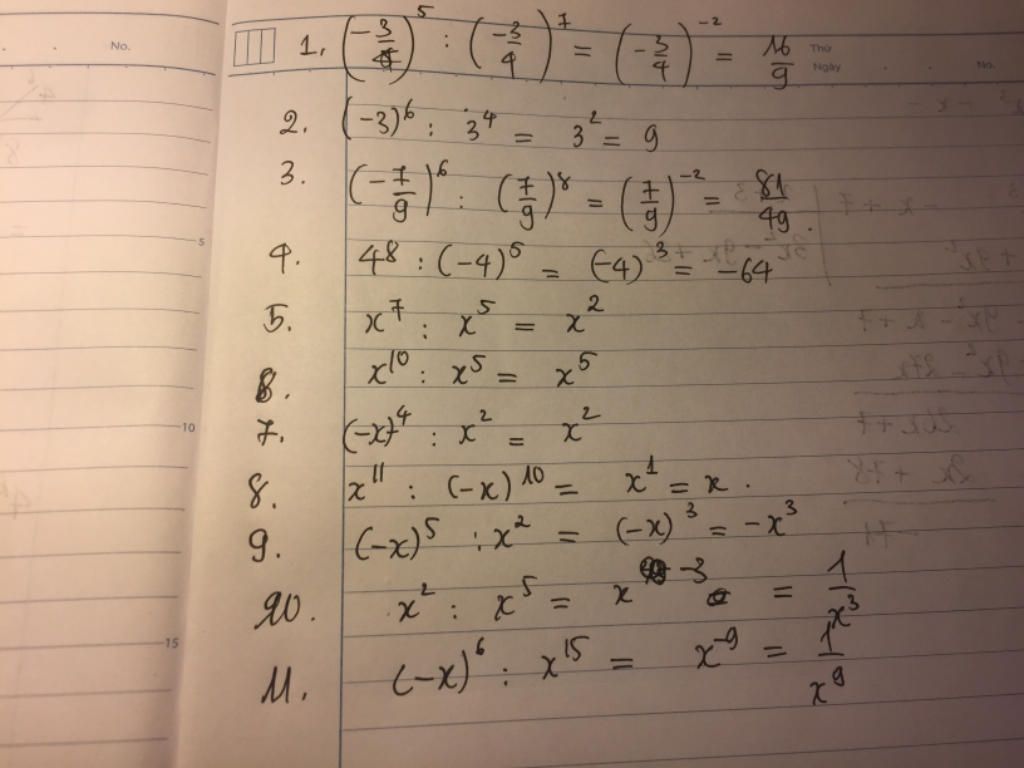 No.
1. (-3/4)^5 : (-3/4)^7 = (-3/4)^-2 = 16/9
Thứ
Ngày
No.
2. (-3)^6 : 3^4 = 3^2 = 9
3. (-7/9)^6 : (7/9)^8 = (7/9)^-2 = 81/49.
4. 4^8 : (-4)^5 = (-4)^3 = -64
5
5. x^7 : x^5 = x^2
6. x^10 : x^5 = x^5
10
7. (-x)^4 : x^2 = x^2
8. x^11 : (-x)^10 = x^1 = x.
9. (-x)^5 : x^2 = (-x)^3 = -x^3
10. x^2 : x^5 = x^-3 = 1/x^3
15
11. (-x)^6 : x^15 = x^-9 = 1/x^9